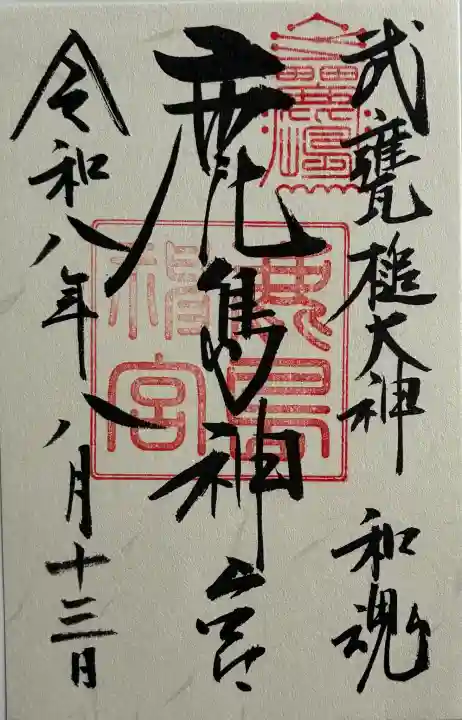 武甕槌大神 和魂
鹿島神宮
令和八年八月十三日
鹿島
神宮